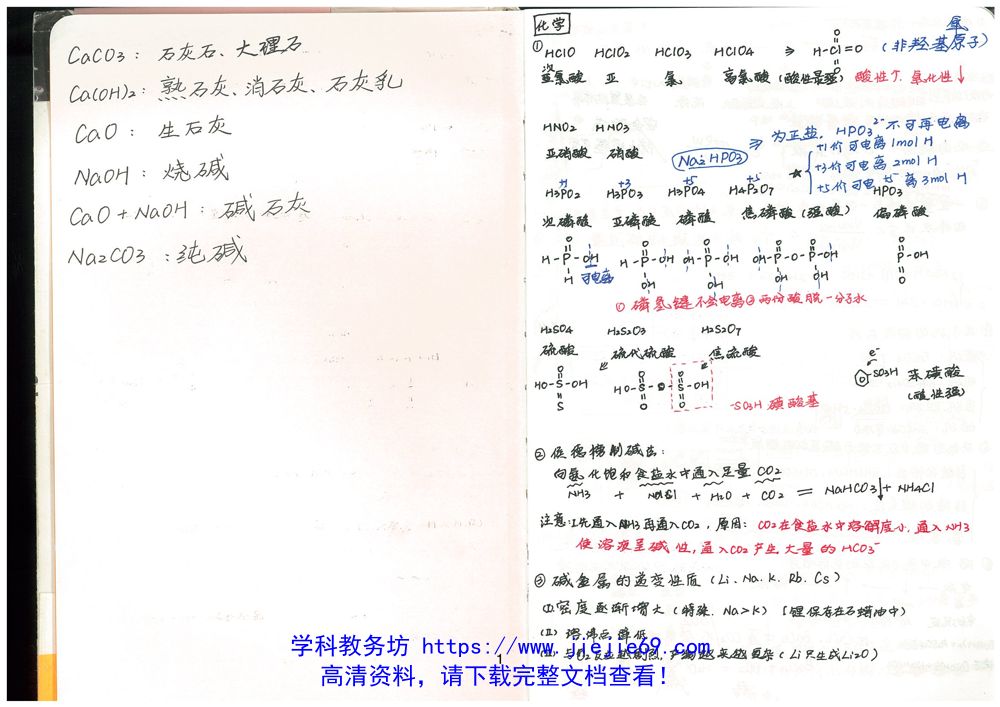 CaCO3：石灰石、大理石
Ca(OH)2：熟石灰、消石灰、石灰乳
CaO：生石灰
NaOH：烧碱
CaO+NaOH：碱石灰
Na2CO3：纯碱
化学
① HClO HClO2 HClO3 HClO4 ⇒ H-Cl=O （非羟基氧原子）
次氯酸 亚 氯 高氯酸（酸性最强） 酸性↑. 氧化性↓
HNO2 HNO3
亚硝酸 硝酸
Na2HPO3 ⇒ 为正盐，HPO3²⁻不可再电离
★ +1价可电离1mol H
+3价可电离2mol H
+5价可电离3mol H
+1 +3 +5 +5 +5
H3PO2 H3PO3 H3PO4 H4P2O7 HPO3
次磷酸 亚磷酸 磷酸 焦磷酸（强酸） 偏磷酸
可电离
① 磷氢键不会电离 ② 两份酸脱一分子水
H2SO4 H2S2O3 H2S2O7
硫酸 硫代硫酸 焦硫酸
e⁻
-SO3H 苯磺酸
（酸性强）
-SO3H 磺酸基
② 侯德榜制碱法：
向氨化饱和食盐水中通入足量CO2
NH3 + NaCl + H2O + CO2 = NaHCO3↓ + NH4Cl
注意：1.先通入NH3再通入CO2，原因：CO2在食盐水中溶解度小，通入NH3
使溶液呈碱性，通入CO2产生大量的HCO3⁻
③ 碱金属的递变性质（Li、Na、K、Rb、Cs）
(I) 密度逐渐增大（特殊：Na>K）［锂保存在石蜡油中］
(II) 熔沸点降低
(III) 与O2反应越剧烈，产物越来越复杂（Li只生成Li2O）
学科教务坊 https://www.jiejie69.com
1
高清资料，请下载完整文档查看！